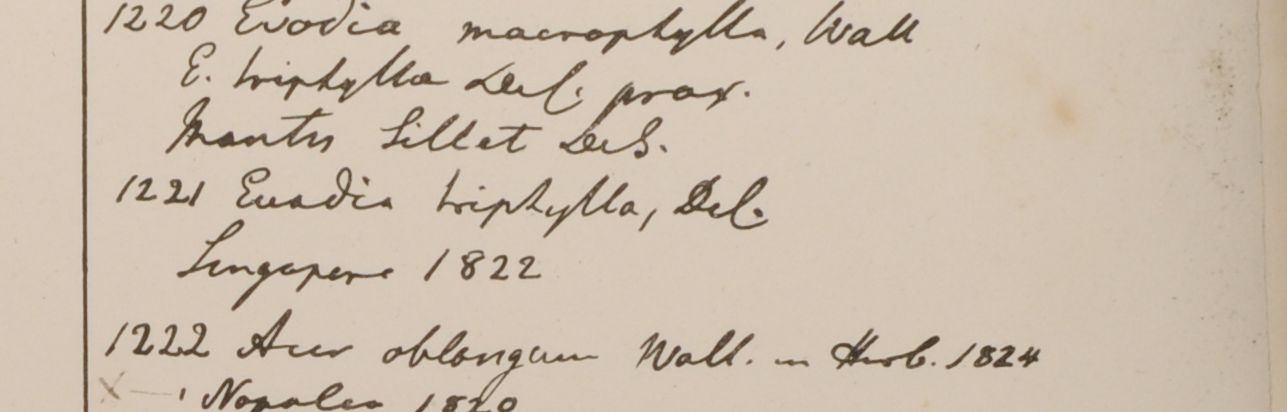 1220 Evodia macrophylla, Wall
E. triphylla Del. prox.
Montis Sillet DeS.
1221 Euadia triphylla, Del.
Singapore 1822
1222 Acer oblongum Wall. in Herb. 1824
Napalea 1820